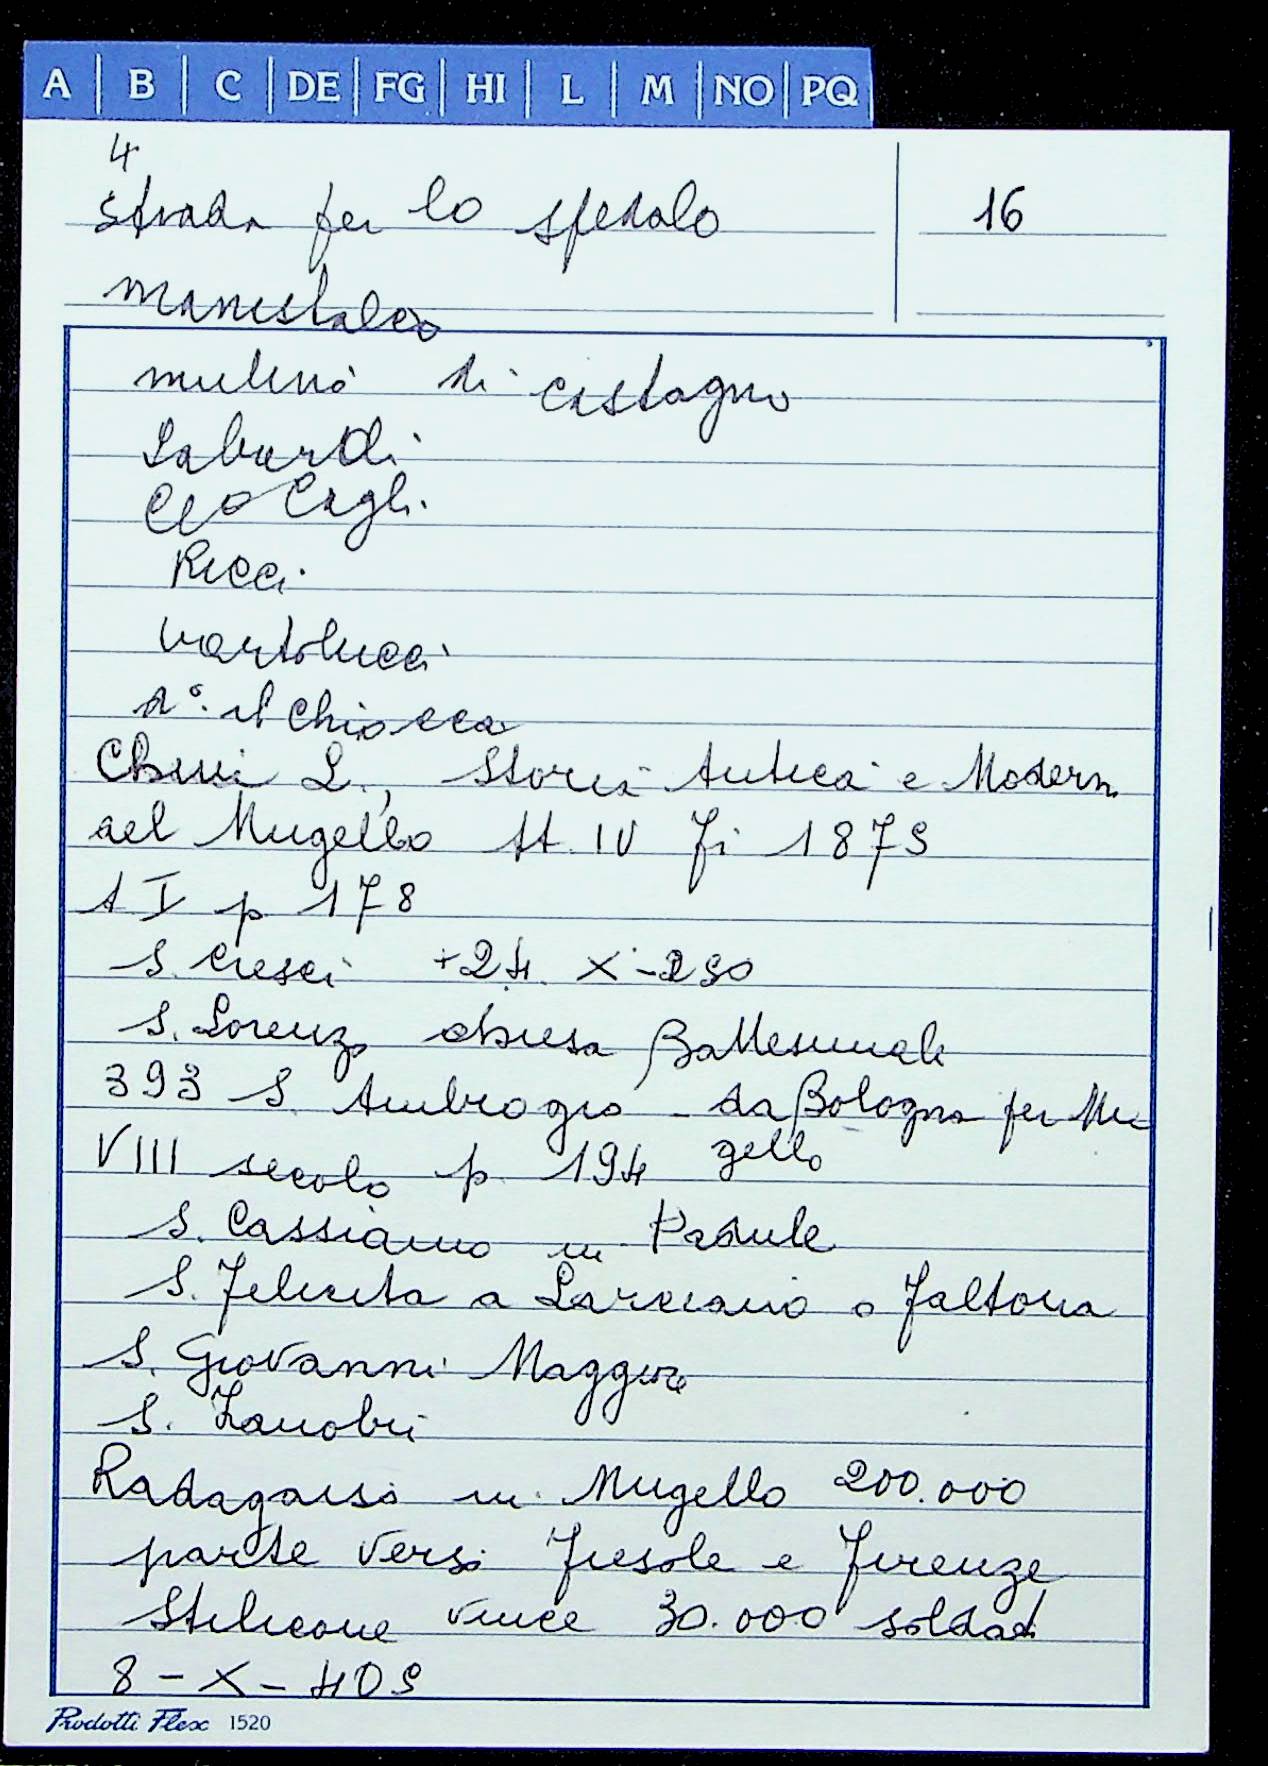 A B C DE FG HI L M NO PQ
4
strada per lo spedalo
16
maniscalco
mulino di castagno
Laburdi
Ricci
Bartolucci
d°. il Chiocca
Chini L., Storia Antica e Modern.
del Mugello tt. IV Fi 1875
t I p 178
S. Cresci +24. X-250
S. Lorenzo chiesa Battesimale
393 S. Ambrogio - da Bologna per Mu
gello
VIII secolo p. 194
S. Cassiano in Padule
S. Felicita a Larciano o Faltona
S. Giovanni Maggiore
S. Zanobi
Radagaiso in Mugello 200.000
parte verso Fiesole e Firenze
Stilicone vince 30.000 soldati
8-X-405
Prodotti Flex 1520